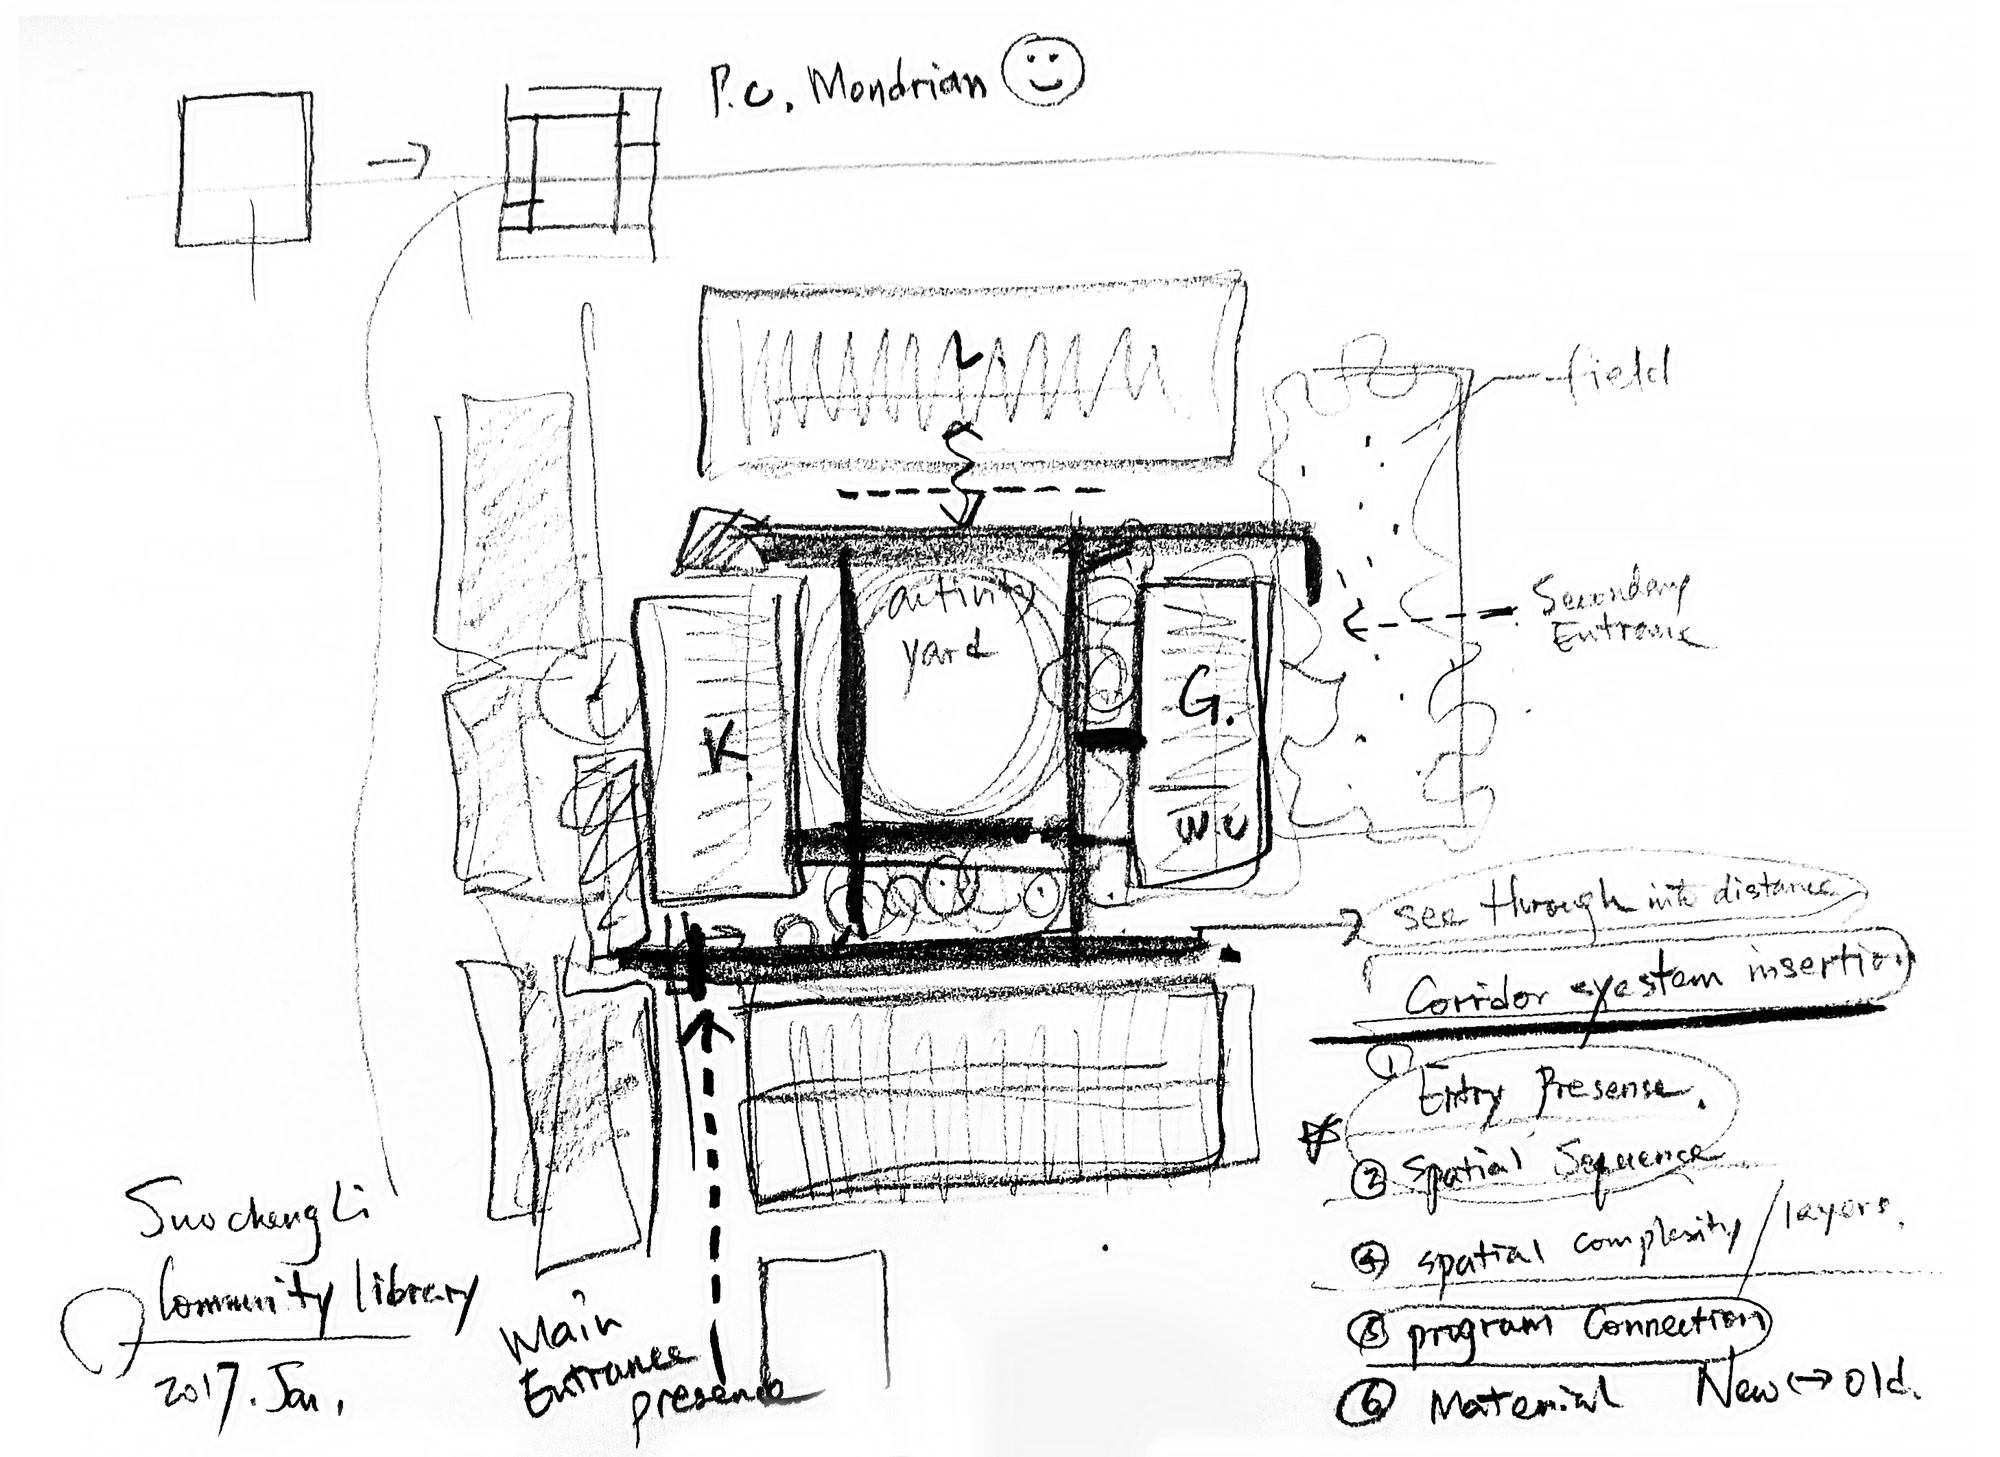 P.C. Mondrian
L.
field
activity
yard
Secondary
Entrance
K.
G.
W.C
see through into distance
Corridor system insertion
① Entry Presense.
② Spatial Sequence
④ spatial complexity / layers.
⑤ program Connection
⑥ Material New ↔ Old.
SuochengLi
Community library
2017. Jan.
Main
Entrance
presence